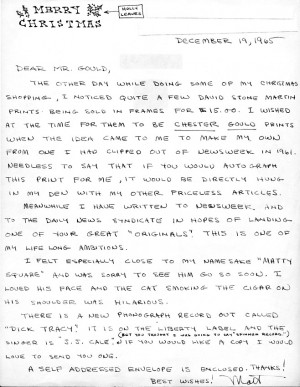 MERRY
CHRISTMAS
HOLLY
LEAVES
DECEMBER 19, 1965
DEAR MR. GOULD,
THE OTHER DAY WHILE DOING SOME OF MY CHRISTMAS
SHOPPING, I NOTICED QUITE A FEW DAVID STONE MARTIN
PRINTS BEING SOLD IN FRAMES FOR $15.00. I WISHED
AT THE TIME FOR THEM TO BE CHESTER GOULD PRINTS
WHEN THE IDEA CAME TO ME TO MAKE MY OWN
FROM ONE I HAD CLIPPED OUT OF NEWSWEEK IN 1961.
NEEDLESS TO SAY THAT IF YOU WOULD AUTOGRAPH
THIS PRINT FOR ME, IT WOULD BE DIRECTLY HUNG
IN MY DEN WITH MY OTHER PRICELESS ARTICLES.
MEANWHILE I HAVE WRITTEN TO NEWSWEEK, AND
TO THE DAILY NEWS SYNDICATE IN HOPES OF LANDING
ONE OF YOUR GREAT "ORIGINALS". THIS IS ONE OF
MY LIFE LONG AMBITIONS.
I FELT ESPECIALLY CLOSE TO MY NAMESAKE "MATTY
SQUARE" AND WAS SORRY TO SEE HIM GO SO SOON. I
LOVED HIS FACE AND THE CAT SMOKING THE CIGAR ON
HIS SHOULDER WAS HILARIOUS.
THERE IS A NEW PHONOGRAPH RECORD OUT CALLED
"DICK TRACY". IT IS ON THE LIBERTY LABEL AND THE
SINGER IS "J.J. CALE". IF YOU WOULD LIKE A COPY I WOULD
LOVE TO SEND YOU ONE.
A SELF ADDRESSED ENVELOPE IS ENCLOSED. THANKS!
BEST WISHES! Matt